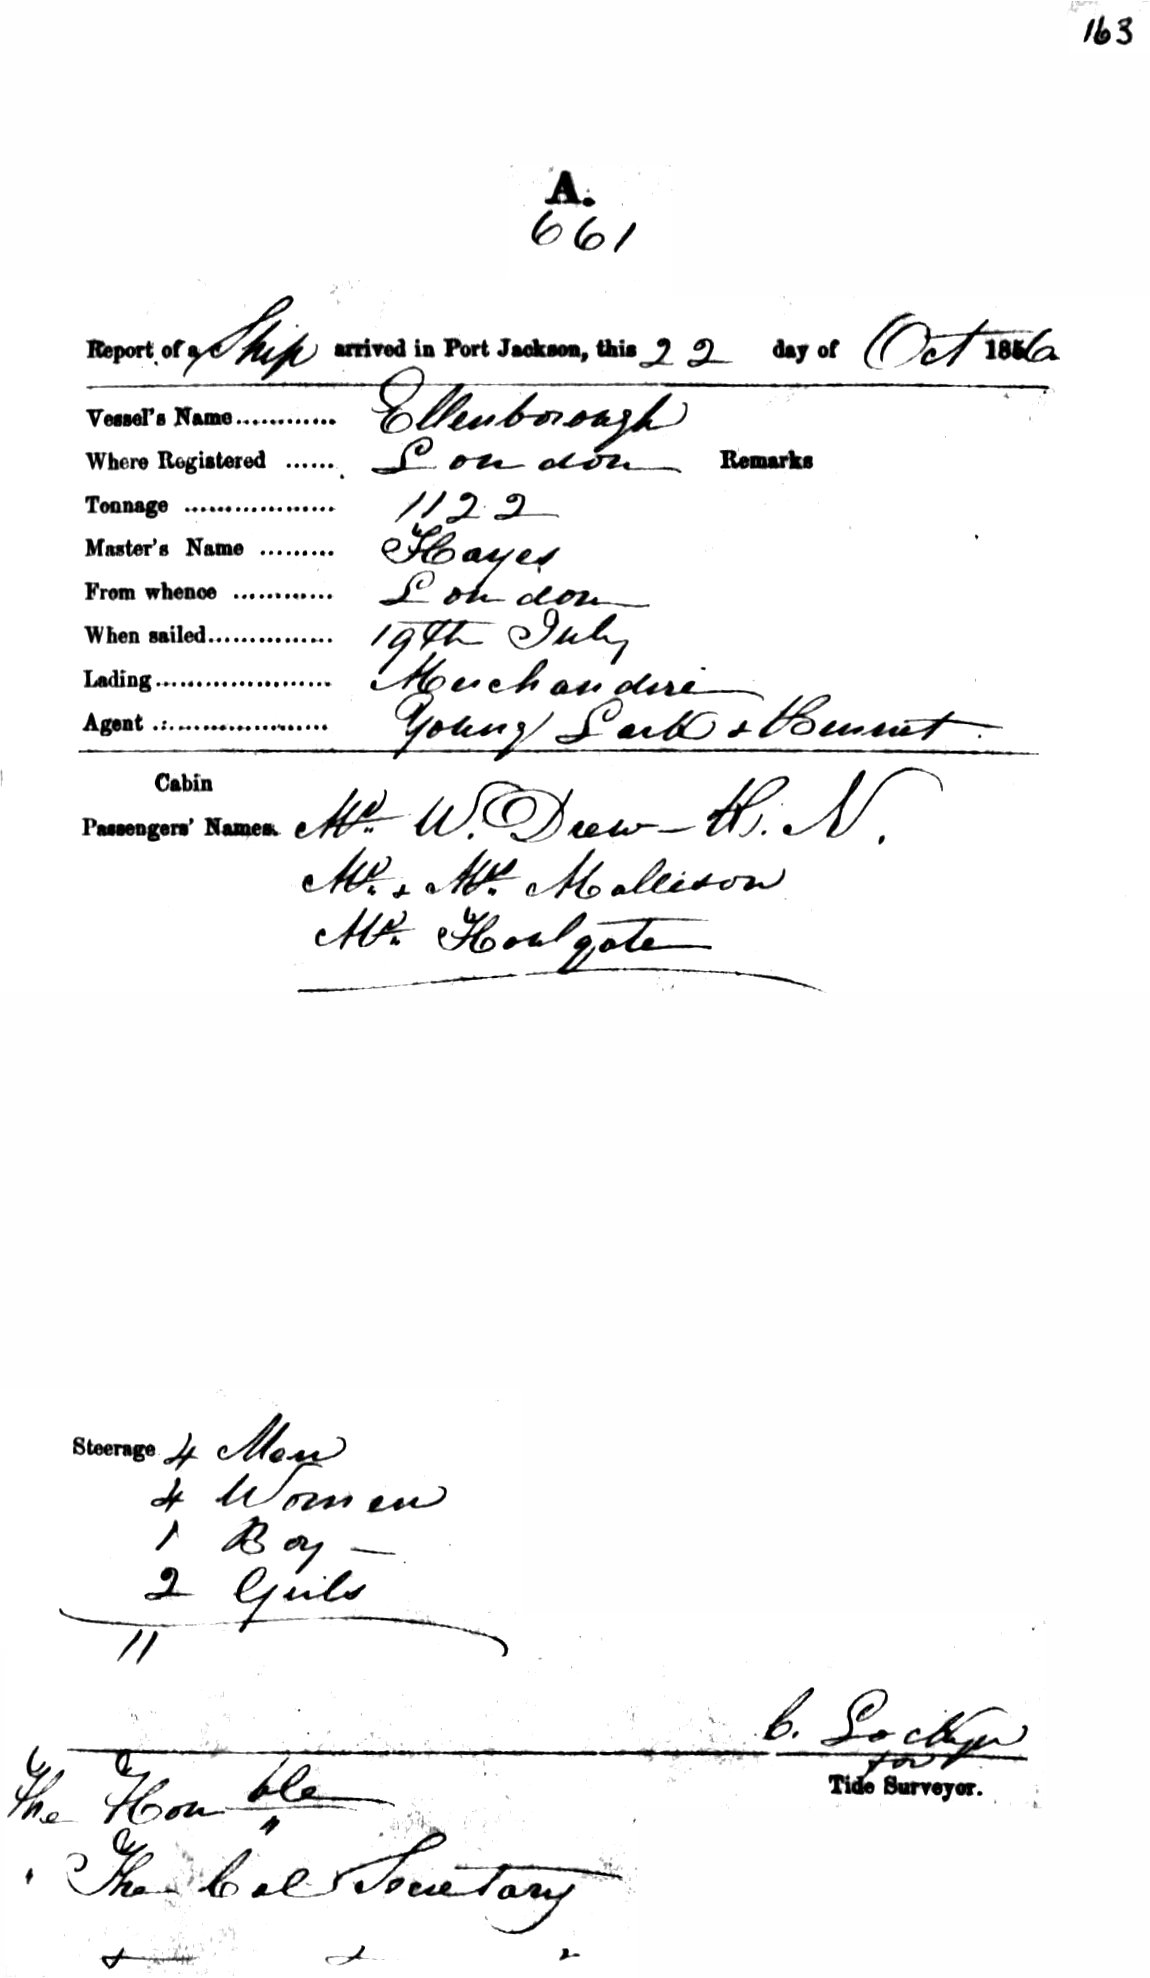 163
A.
661
Report of a Ship arrived in Port Jackson, this 22 day of Oct 1856
Vessel's Name............ Ellenborough
Where Registered ...... London Remarks
Tonnage .................. 1122
Master's Name ......... Hayes
From whence ............ London
When sailed............... 19th July
Lading...................... Merchandise
Agent ...................... Young Lark & Bennet
Cabin
Passengers' Names. Mr. W. Drew - N.
Mr. & Mrs. Mollison
Mr. Houlgate
Steerage 4 Men
4 Women
1 Boy —
2 Girls
11
C. Lockyer
for
Tide Surveyor.
The Honble
The Col Secretary